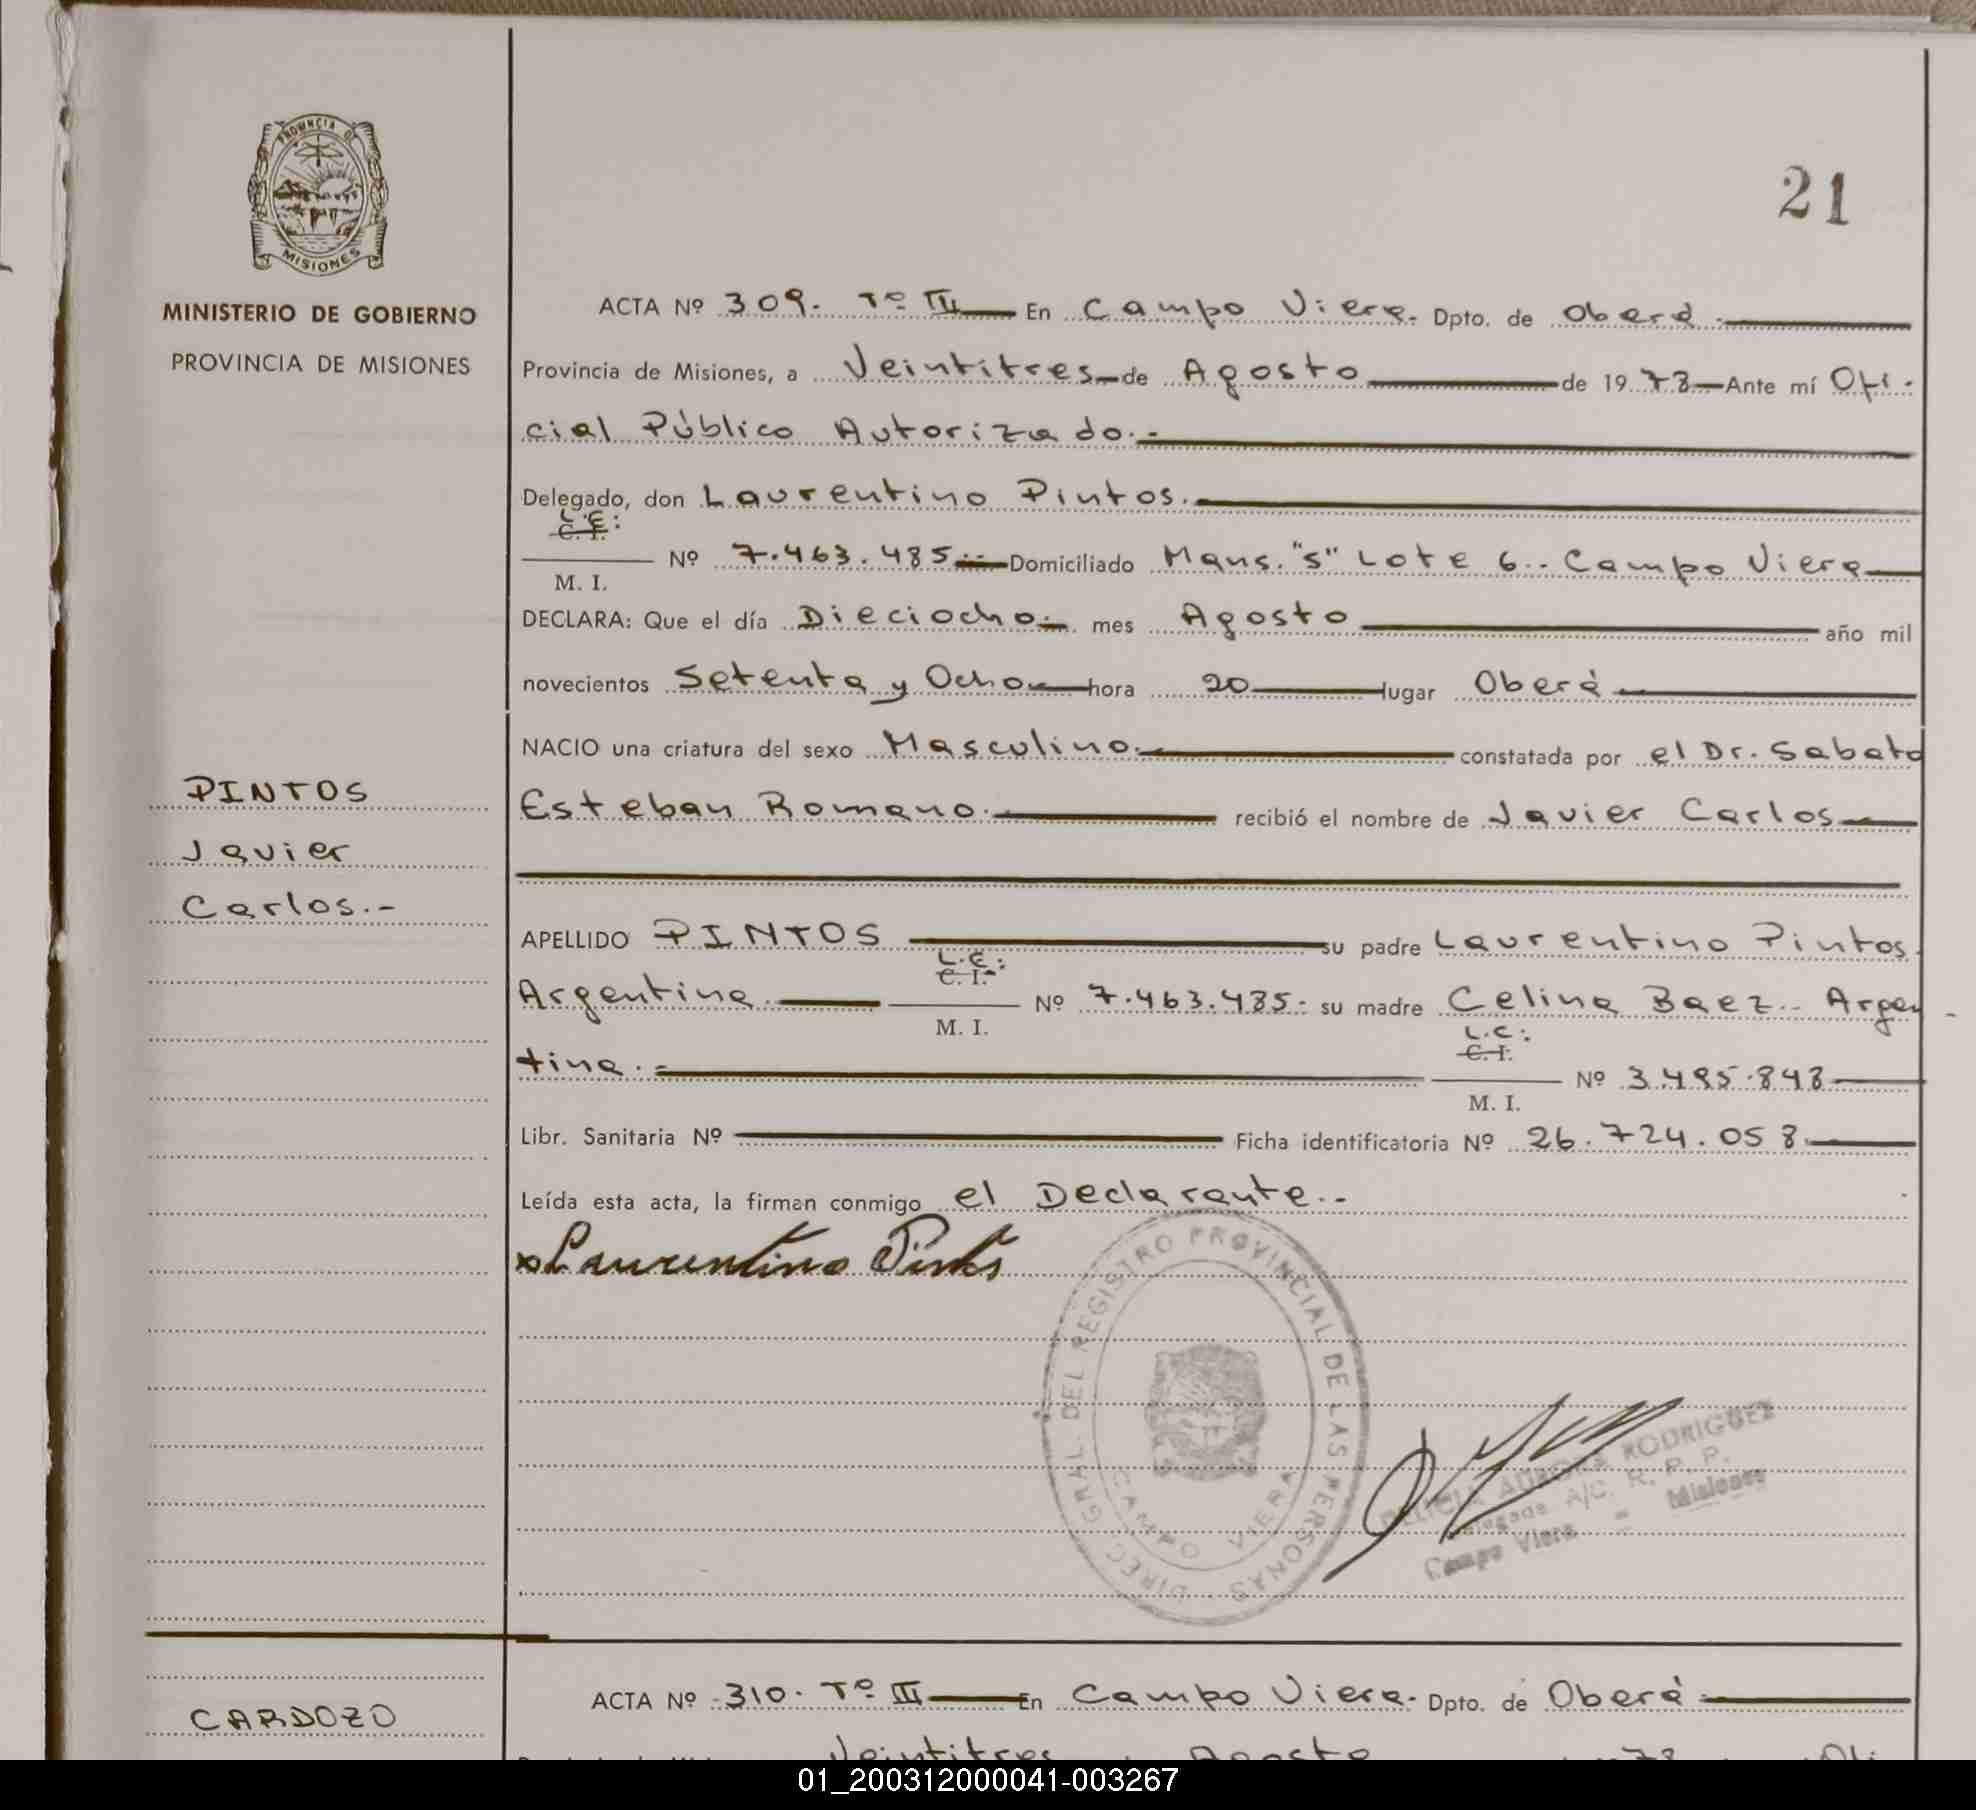 PROVINCIA DE
MISIONES
MINISTERIO DE GOBIERNO
PROVINCIA DE MISIONES
21
ACTA Nº 309. Tº III En Campo Viera. Dpto. de Oberá.
Provincia de Misiones, a Veintitres de Agosto de 1978 Ante mí Ofi-
cial Público Autorizado.-
Delegado, don Laurentino Pintos.
L.E:
C. I.
M. I.
Nº 7.463.485.- Domiciliado Mans. "S" Lote 6.- Campo Viera
DECLARA: Que el día Dieciocho.- mes Agosto año mil
novecientos Setenta y Ocho hora 20 lugar Oberá
NACIO una criatura del sexo Masculino. constatada por el Dr. Sabato
Esteban Romano. recibió el nombre de Javier Carlos
PINTOS
Javier
Carlos.-
APELLIDO PINTOS su padre Laurentino Pintos.
L.E:
C. I.
M. I.
Argentina. Nº 7.463.485.- su madre Celina Baez.- Argen-
L.C:
C. I.
M. I.
tina.- Nº 3.495.848
Libr. Sanitaria Nº Ficha identificatoria Nº 26.724.058.
Leída esta acta, la firman conmigo el Declarante.-
x Laurentino Pintos
DIREC. GRAL. DEL REGISTRO PROVINCIAL DE LAS PERSONAS
CAMPO VIERA
AURORA RODRIGUEZ
Delegada A/C. R. P. P.
Campo Viera = Misiones
ACTA Nº 310. Tº III En Campo Viera. Dpto. de Oberá.
CARDOZO
Veintitres Agosto 78 Ofi
01_200312000041-003267